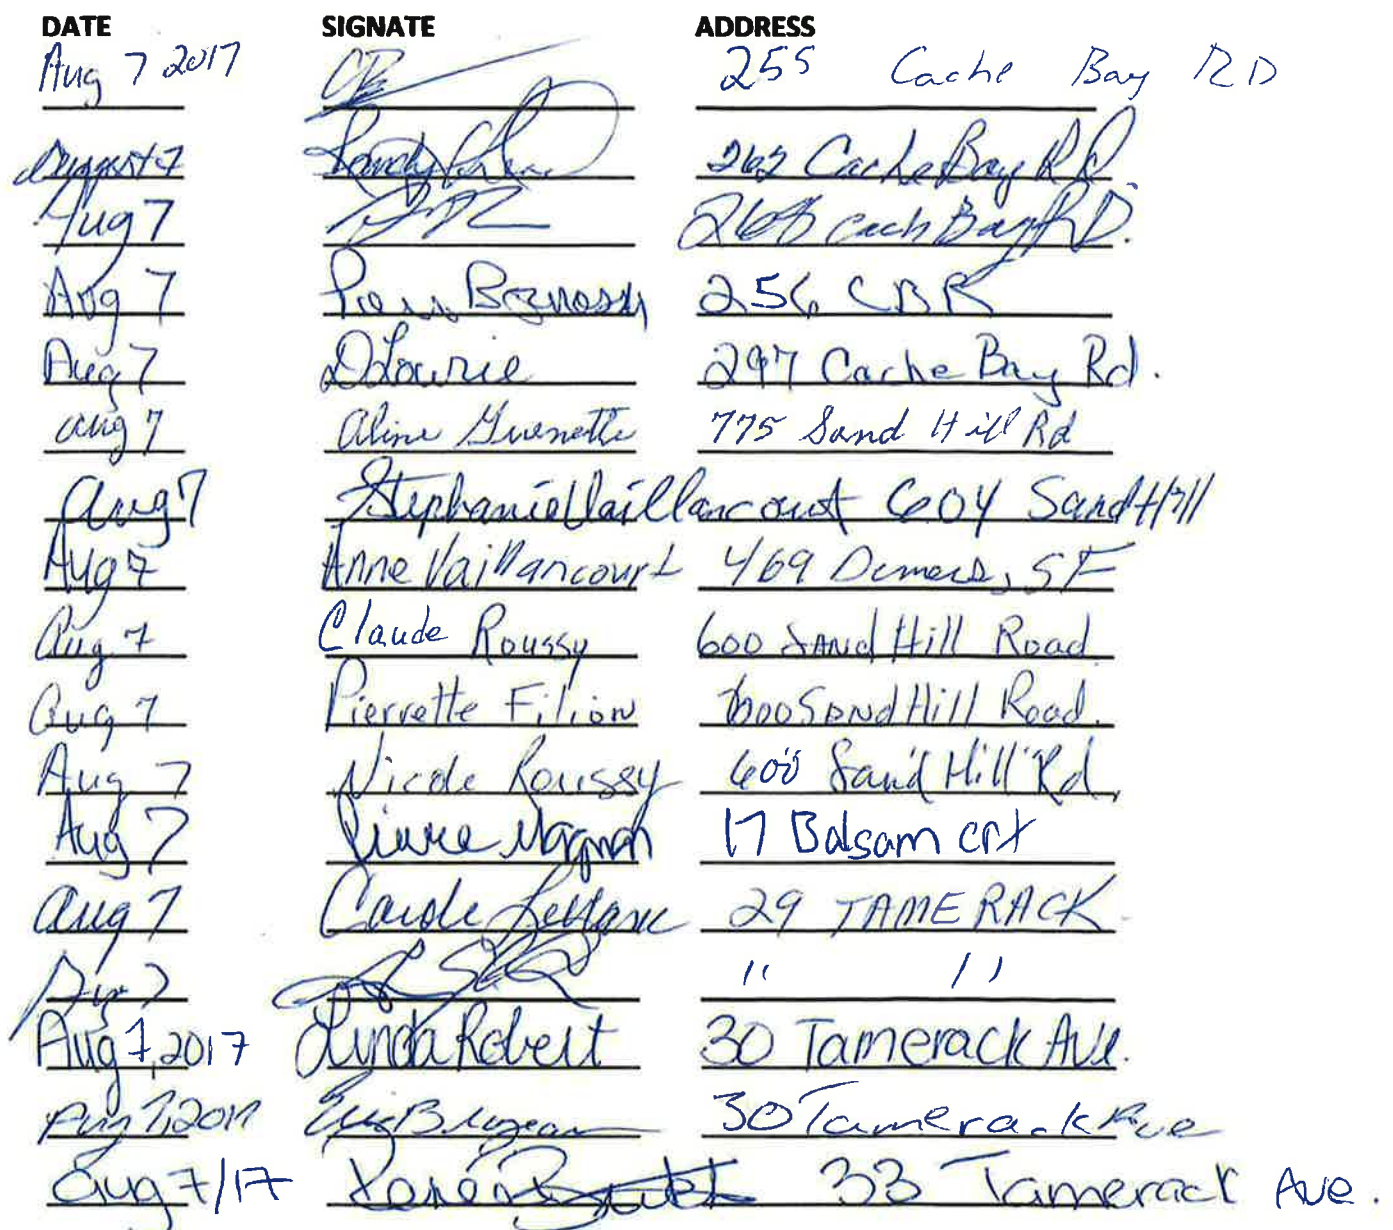 DATE SIGNATE ADDRESS
Aug 7 2017 255 Cache Bay RD
August 7 262 Cache Bay Rd.
Aug 7 268 Cach Bay RD.
Aug 7 256 CBR
Aug 7 D Lowrie 297 Cache Bay Rd.
aug 7 Aline Guenette 775 Sand Hill Rd
aug 7 Stephanie Vaillancourt 604 Sand Hill
Aug 7 Anne Vaillancourt 469 Demers, SF
Aug 7 Claude Roussy 600 SAND Hill Road
Aug 7 Pierrette Filion 600 Sand Hill Road.
Aug 7 Nicole Roussy 600 Sand Hill Rd,
Aug 7 Pierre 17 Balsam crt
aug 7 Carole Leblanc 29 TAMERACK
7 " "
Aug 7, 2017 Linda Robert 30 Tamerack Ave.
Aug 7, 2017 30 Tamerack Ave
Aug 7/17 33 Tamerack Ave.